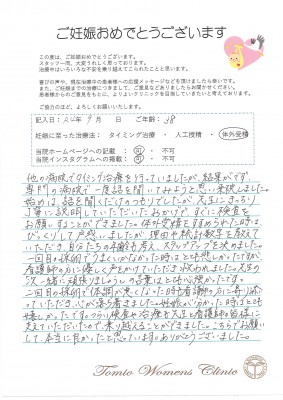 ご妊娠おめでとうございます
この度は、ご妊娠おめでとうございます。
スタッフ一同、大変うれしく思っております。
治療中はいろいろな不安を乗り越えてこられたことと思います。
喜びの声や、現在治療中の患者様への応援メッセージなどを頂けましたら幸いです。
また、ご妊娠までの治療につきまして、お気づきの点がございましたらお聞かせください。
患者様からのご意見をもとに、よりよいクリニックを目指していきたいと考えております。
ご協力のほど、よろしくお願いいたします。
記入日: 9月 日 ご年齢: 38
妊娠に至った治療法: タイミング治療 ・ 人工授精 ・ 体外受精
当院ホームページへの記載: 可 ・ 不可
当院インスタグラムへの掲載: 可 ・ 不可
他の病院でタイミング治療を行っていましたが、結果がでず、
専門の病院で一度話を聞いてみようと思い来院しました。
始めは、話を聞くだけのつもりでしたが、先生にきっちり
丁寧に説明していただいたおかげで、すぐに検査を
お願いすることができました。体外受精をすすめられた時は
びっくりして戸惑いましたが、夫婦の検討材料を教えて
いただき、自分たちの年齢も考え、ステップアップを決めました。
一回目の採卵でうまくいかなかった時はとても悲しかったですが
看護師の方に優しく声をかけていただき救われました。先生の
「又一緒に頑張りましょう」の言葉はとても心強かったです。
二回目の採卵で体調が悪くなった時も看護師の方に寄り添
っていただき、心が落ち着きました。妊娠が分かった時はとても
嬉しかったです。つらい検査や治療も先生と看護師の皆様に
支えていただいたので乗り越えることができました。こちらでお願い
して本当に良かったと思っています。ありがとうございました。
Tomio Womens Clinic